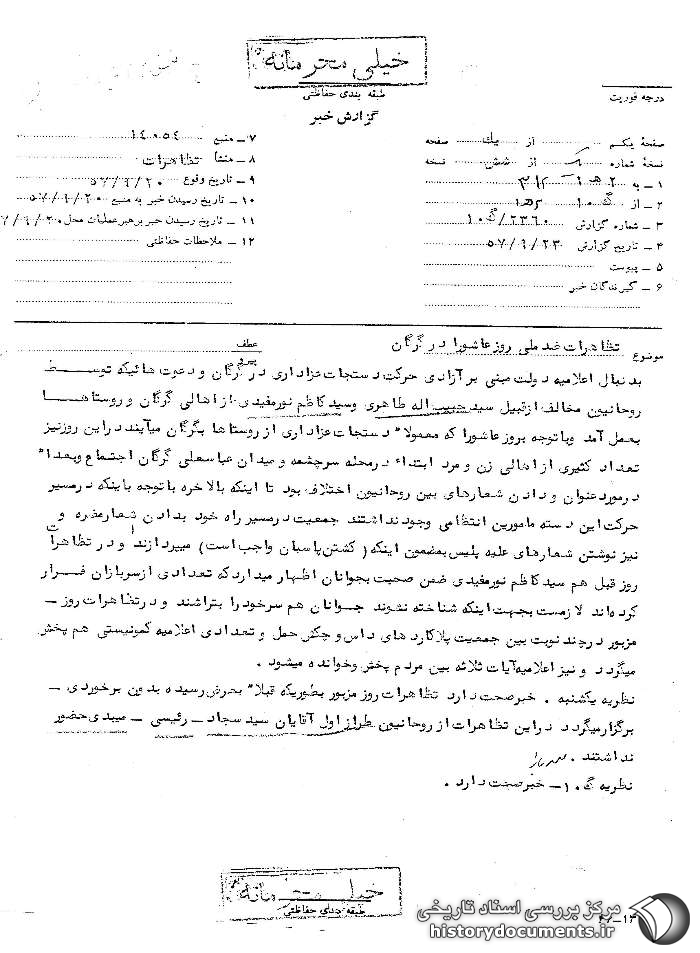 خیلی محرمانه
طبقه بندی حفاظتی
گزارش خبر
درجه فوریت
صفحهٔ یکم از یک صفحه
نسخهٔ شماره از شش نسخه
۱ – به ۲ هـ ۳۱۲
۲ – از
۳ – شماره گزارش ۲۳۶۰/ک ۱۰
۴ – تاریخ گزارش ۵۷/۹/۲۳
۵ – پیوست
۶ – گیرندگان خبر
۷ – منبع ۱۴۰۵۴
۸ – منشأ تظاهرات
۹ – تاریخ وقوع ۵۷/۹/۲۰
۱۰ – تاریخ رسیدن خبر به منبع ۵۷/۹/۲۰
۱۱ – تاریخ رسیدن خبر برهبر عملیات محل ۷/۹/۲۰
۱۲ – ملاحظات حفاظتی
موضوع تظاهرات ضد ملی روز عاشورا در گرگان
عطف
بدنبال اعلامیه دولت مبنی بر آزادی حرکت دستجات عزاداری در گرگان و دعوت هائیکه توسط
روحانیون مخالف از قبیل سید حبیب اله طاهری وسید کاظم نورمفیدی از اهالی گرگان و روستاها
بعمل آمد وبا توجه بروز عاشورا که معمولا" دستجات عزاداری از روستا ها بگرگان میآیند در این روز نیز
تعداد کثیری از اهالی زن و مرد ابتداء در محله سرچشمه و میدان عباسعلی گرگان اجتماع وبعدا"
در مورد عنوان و دادن شعارهای بین روحانیون اختلاف بود تا اینکه بالاخره با توجه باینکه در مسیر
حرکت این دسته مامورین انتظامی وجود نداشتند جمعیت در مسیر راه خود بدادن شعار مضره و
نیز نوشتن شعارهای علیه پلیس بمضمون اینکه ( کشتن پاسبان واجب است ) میپردازند و در تظاهرات
روز قبل هم سید کاظم نورمفیدی ضمن صحبت بجوانان اظهار میدارد که تعدادی از سربازان فرار
کرده‌اند لازمست بجهت اینکه شناخته نشوند جوانان هم سر خود را بتراشند و در تظاهرات روز –
مزبور در چند نوبت بین جمعیت پلاکارد های داس و چکش حمل و تعدادی اعلامیه کمونیستی هم پخش
میگردد و نیز اعلامیه آیات ثلاثه بین مردم پخش وخوانده میشود .
نظریه یکشنبه . خبر صحت دارد تظاهرات روز مزبور بطوریکه قبلا" بعرض رسیده بدون برخوردی –
برگزار میگردد در این تظاهرات از روحانیون طراز اول آقایان سید سجاد – رئیسی – میبدی حضور
نداشتند .
نظریه ک ۱۰ – خبر صحت دارد .
خیلی محرمانه
طبقه بندی حفاظتی
مرکز بررسی اسناد تاریخی
historydocuments.ir